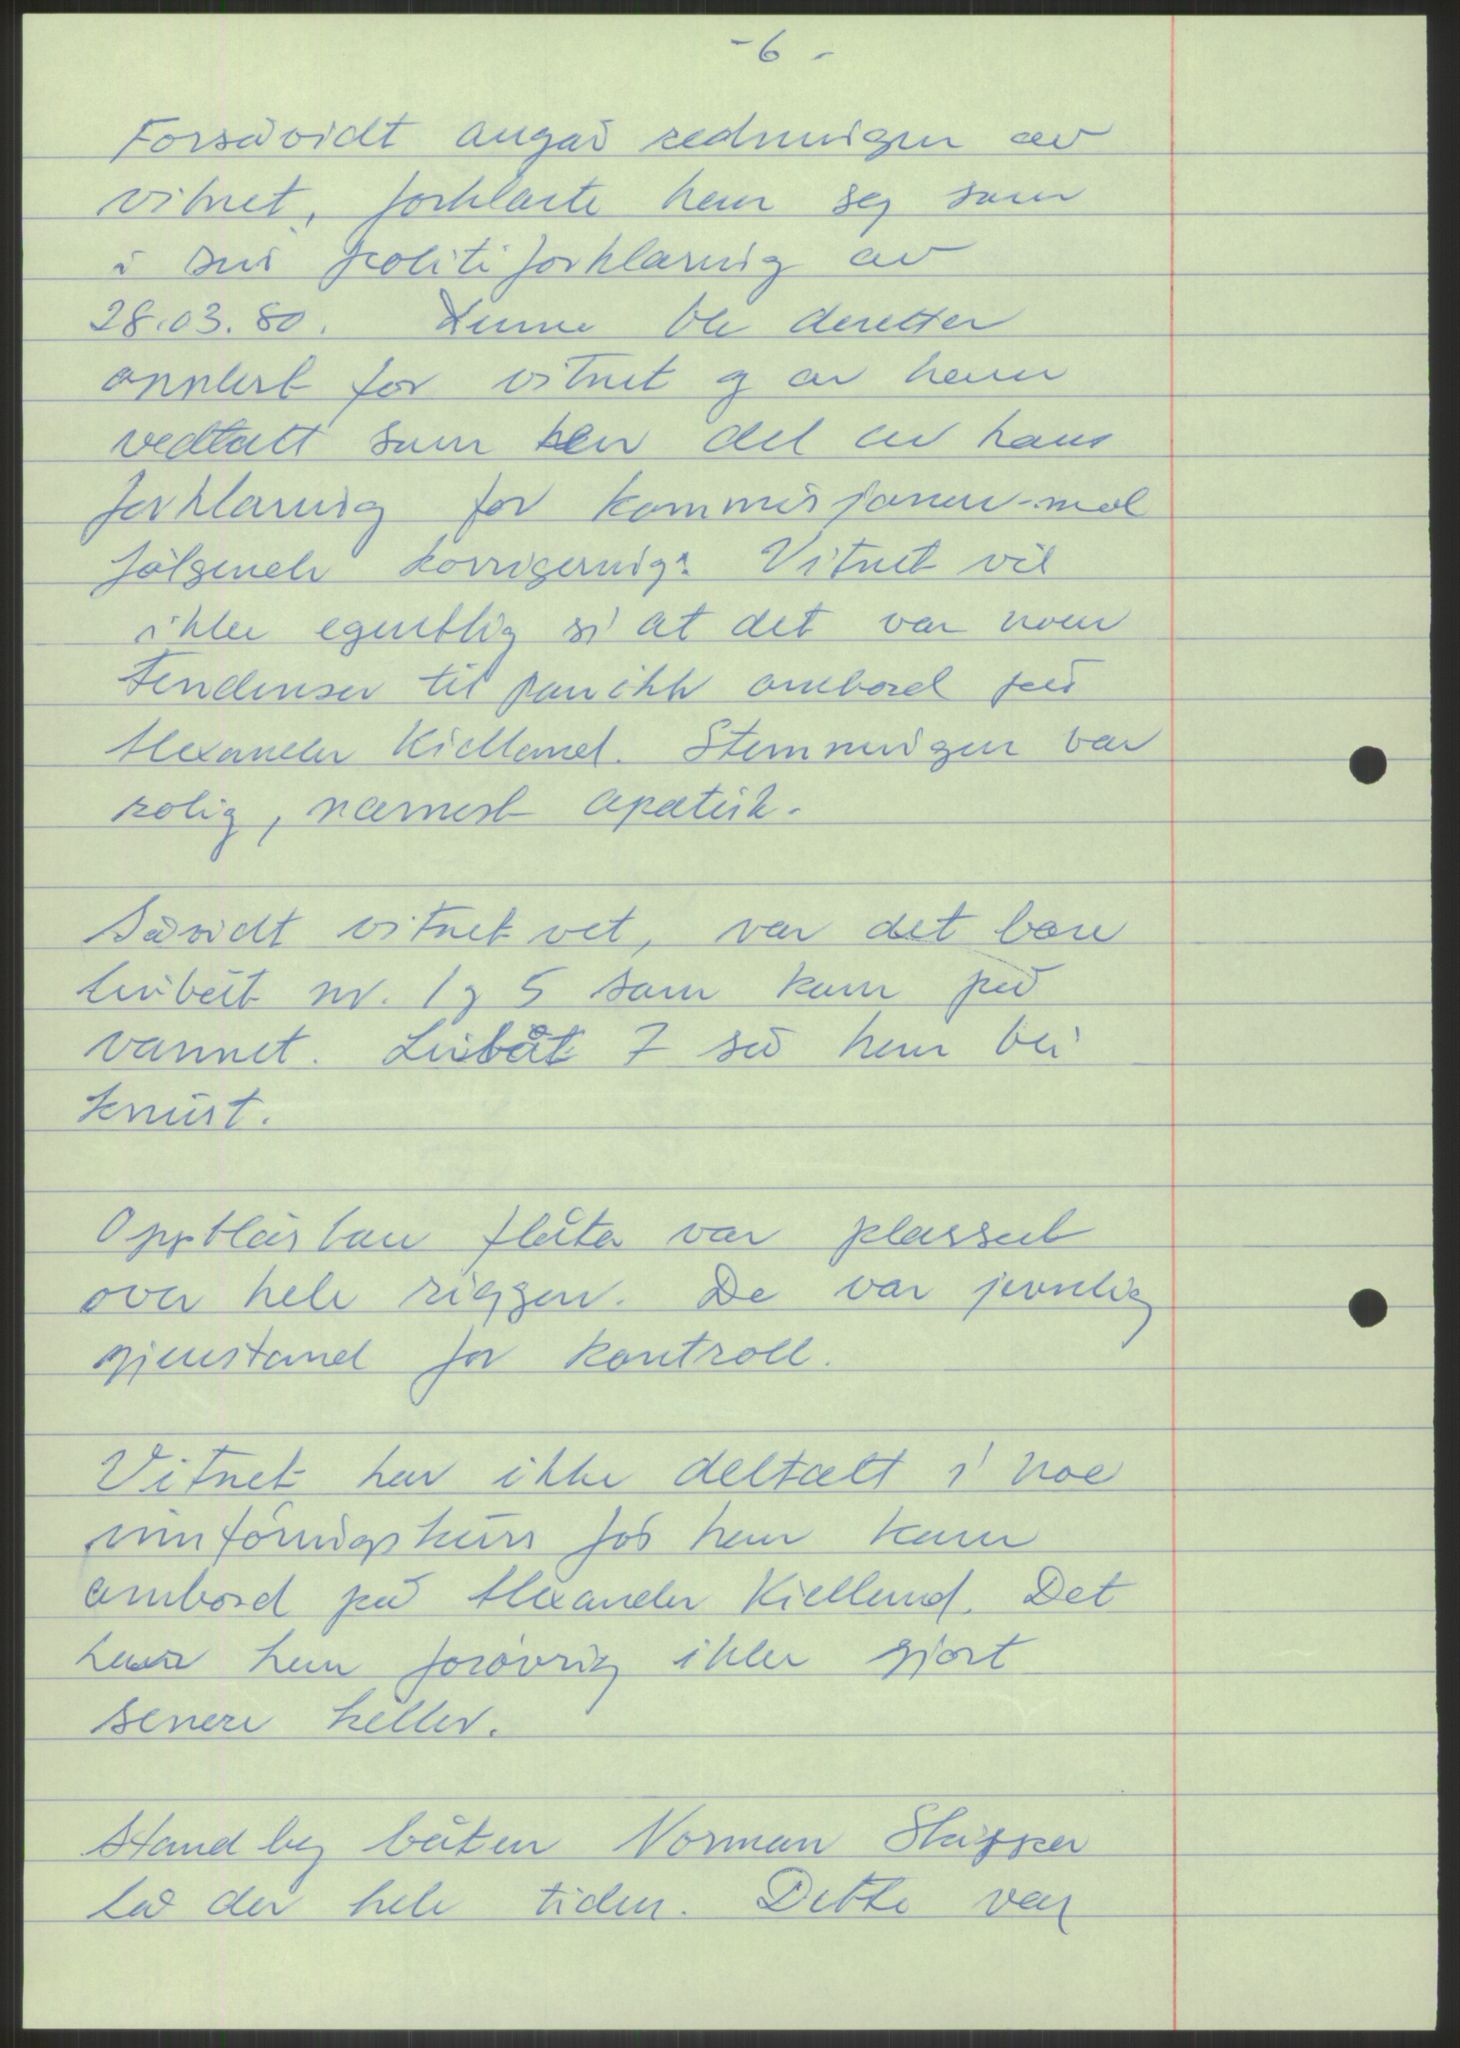 - 6 -
Forsåvidt angår redningen av
vitnet, forklarte han seg som
i sin politiforklaring av
28.03.80. Denne ble deretter
opplest for vitnet og av ham
vedtatt som en del av hans
forklaring for kommisjonen - med
følgende korrigering: Vitnet vil
ikke egentlig si at det var noen
tendenser til panikk ombord på
Alexander Kielland. Stemningen var
rolig, nærmest apatisk.
Såvidt vitnet vet, var det bare
livbåt nr. 1 og 5 som kom på
vannet. Livbåt 7 så han bli
knust.
Oppblåsbare flåter var plassert
over hele riggen. De var jevnlig
gjenstand for kontroll.
Vitnet har ikke deltatt i noe
innføringskurs før han kom
ombord på Alexander Kielland. Det
har han forøvrig ikke gjort
senere heller.
Stand by båten Norman Skipper
lå der hele tiden. Dette var